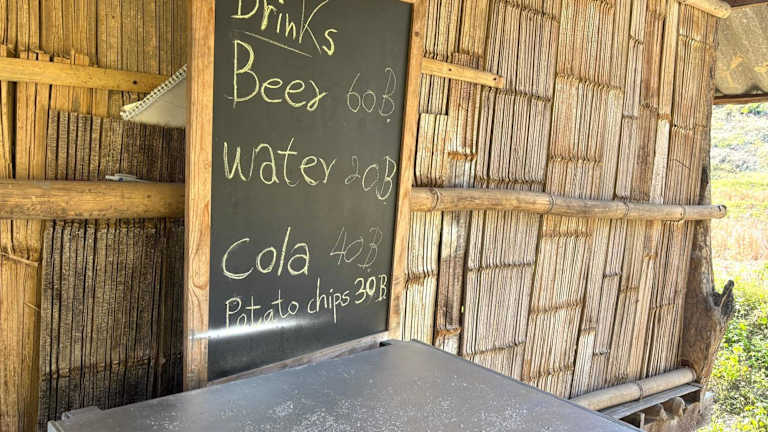 Drinks
Beer 60B
water 20B
cola 40B
Potato chips 30B